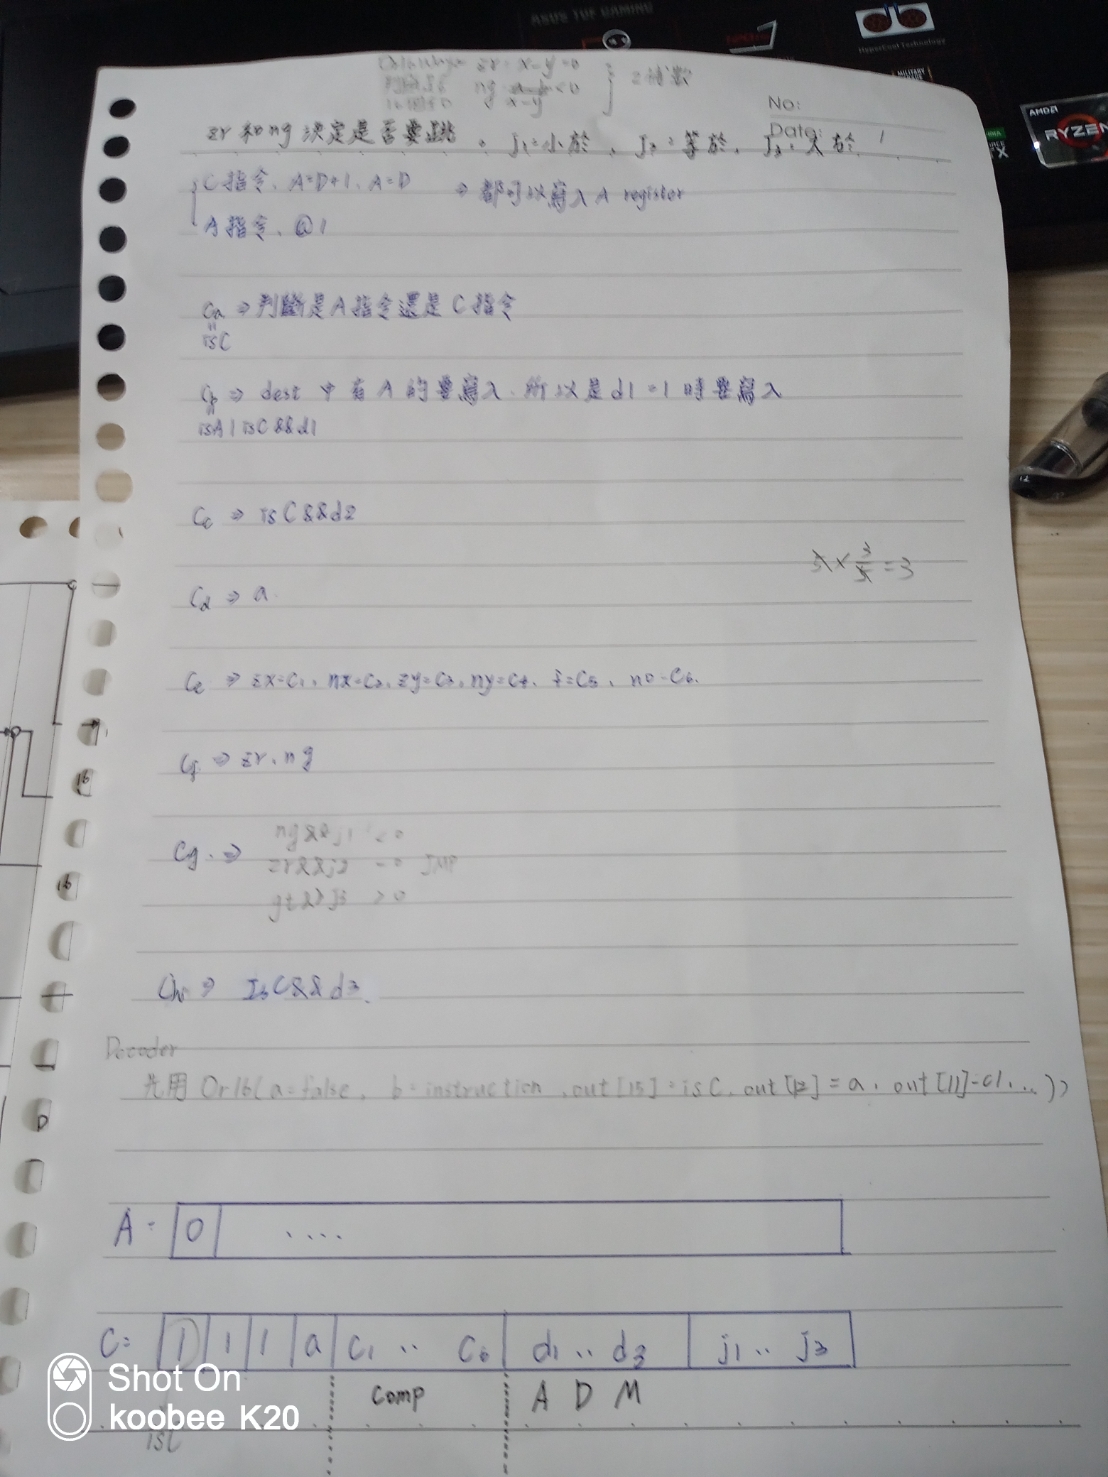 ASUS TUF GAMING
HyperCool Technology
AMD
RYZEN
zr = x-y=0
ng <0
x-y
No:
Date:
zr 和 ng 決定是否要跳 。 j1=小於 、 j2=等於、 j3=大於
C指令、A=D+1、A=D ⇒ 都可以寫入 A register
A指令、@1
Ca ⇒ 判斷是A指令還是C指令
=
isC
⇒ dest 中有 A 的要寫入、所以是d1=1時要寫入
isA | isC && d1
Cc ⇒ isC&&d2
5×3/5=3
Cd ⇒ a
Ce ⇒ zx=C1、nx=C2、zy=C3、ny=C4、f=C5、no=C6.
Cf ⇒ zr、ng
Cg. ⇒ ng&&j1 <0
zr&&j2 =0 JMP
gt&&j3 >0
Ch ⇒ IsC&&d3.
Decoder
先用 Or16(a=false, b=instruction, out[15]=isC, out[12]=a, out[11]=c1, ...))
A= 0 ....
C= 1 1 1 a C1 .. C6 d1 .. d3 j1 .. j3
comp A D M
isC
16
16
D
Shot On
koobee K20